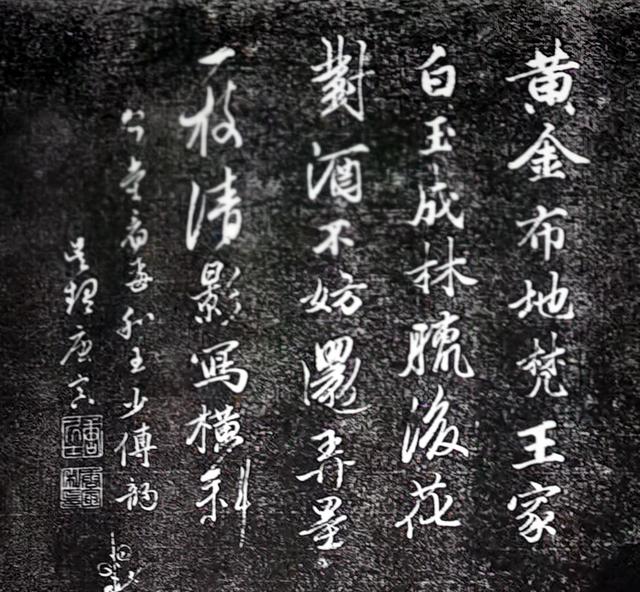 黃金布地梵王家
白玉成林臘後花
對酒不妨還弄墨
一枝清影寫橫斜
竹堂看梅和王少傅韻
吳趨唐寅